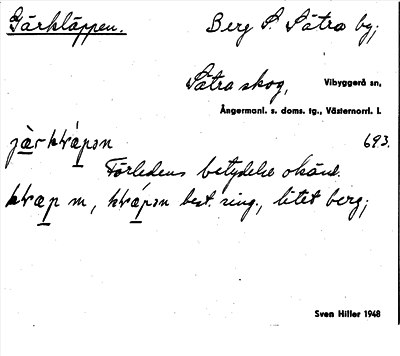 Gärkläppen. Berg S. Sätra by,
Sätra skog, Vibyggerå sn,
Ångermanl. s. doms. tg., Västernorrl. l.
693.
Förledens betydelse okänd.
m, best. sing., litet berg;
Sven Hiller 1948